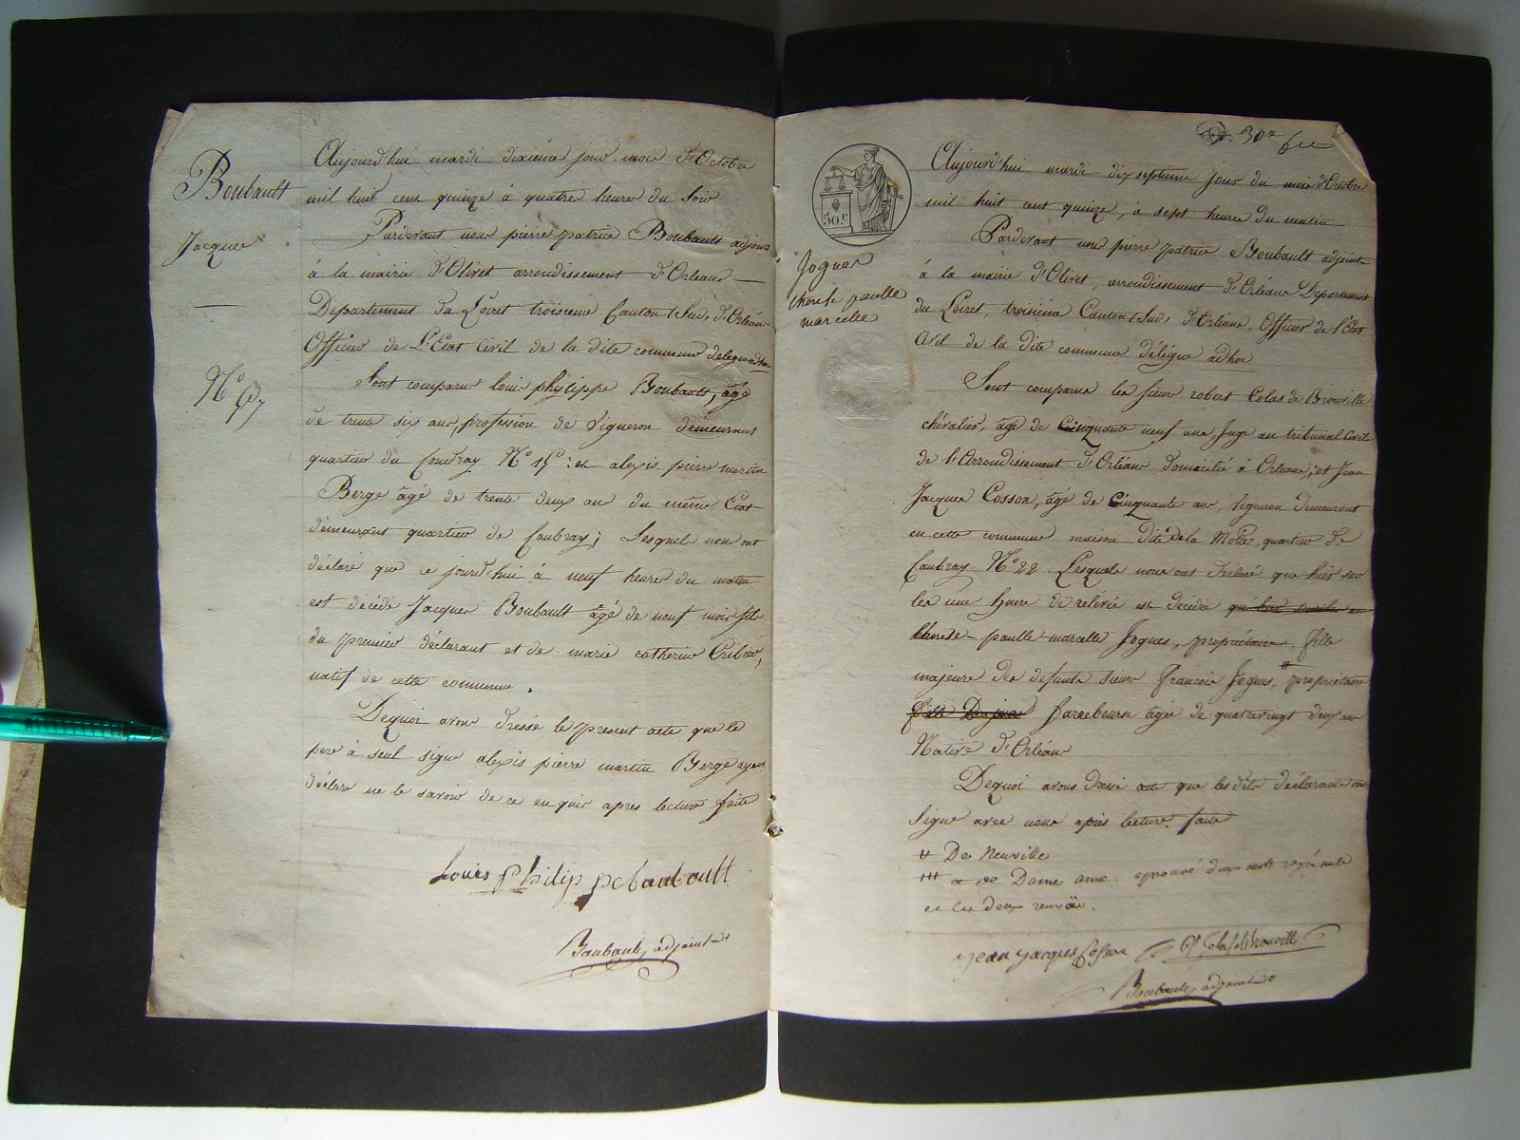 Boubault
Jacques
Aujourd'hui mardi dixième jour mois d'Octobre
mil huit cens quinze à quatres heures du soir
Pardevant nous pierre patrice Boubault adjoint
à la mairie d'Olivet arrondissement d'Orléans
Département du Loiret troisième Canton, Sud, d'Orléans
Officier de L'Etat Civil de la dite commune
Sont comparus louis philippe Boubault, âgé
de trente six ans, profession de Vigneron demeurant
quartier du Coudray N° 15 : et alexis pierre martin
Berge âgé de trente deux ans du même Etat
démeurant quartier de Caubray; Lesquels nous ont
déclaré que ce jourd'hui à neuf heures du matin
est décédé Jacques Boubault âgé de neuf mois fils
du premier déclarant et de marie catherine
natif de cette commune.
Dequoi avons dressé le présent acte que le
pere à seul signé alexis pierre martin Berge ayant
déclaré ne le savoir de ce enquis apres lecture faite
Louis philippe boubault
Boubault, adjoint
30e
50 c
Jogues
therese paulle
marcelle
Aujourd'hui mardi dix septieme jour du mois d'Octobre
mil huit cent quinze, à sept heures du matin
Pardevant nous pierre patrice Boubault adjoint
à la mairie d'Olivet, arrondissement d'Orléans Département
du Loiret, troisième Canton, Sud, d'Orléans, Officier de l'Etat
Civil de la dite commune délégué adhoc
Sont comparus les sieurs robert Colas de Brouville
chévalier, âgé de Cinquante neuf ans, Juge au tribunal Civil
de l'Arrondissement d'Orléans domicilié à Orléans, et Jean
Jacques Cosson, âgé de Cinquante ans, vigneron demeurant
en cette commune maison dite de la Motte, quartier de
Caubray N° 22 Lesquels nous ont déclaré que hier sur
les une heure de relevée est décédée
therese paulle marcelle Jogues, propriétaire, fille
majeure des défunts sieur François Jogues, propriétaire
fille âgée de quatrevingt deux ans
Native d'Orléans
Dequoi avons dressé acte que les dits déclarans ont
signé avec nous après lecture faite
De Neuville
et de Dame anne
et les deux renvois.
Jean Jacques Cosson
Boubault, adjoint